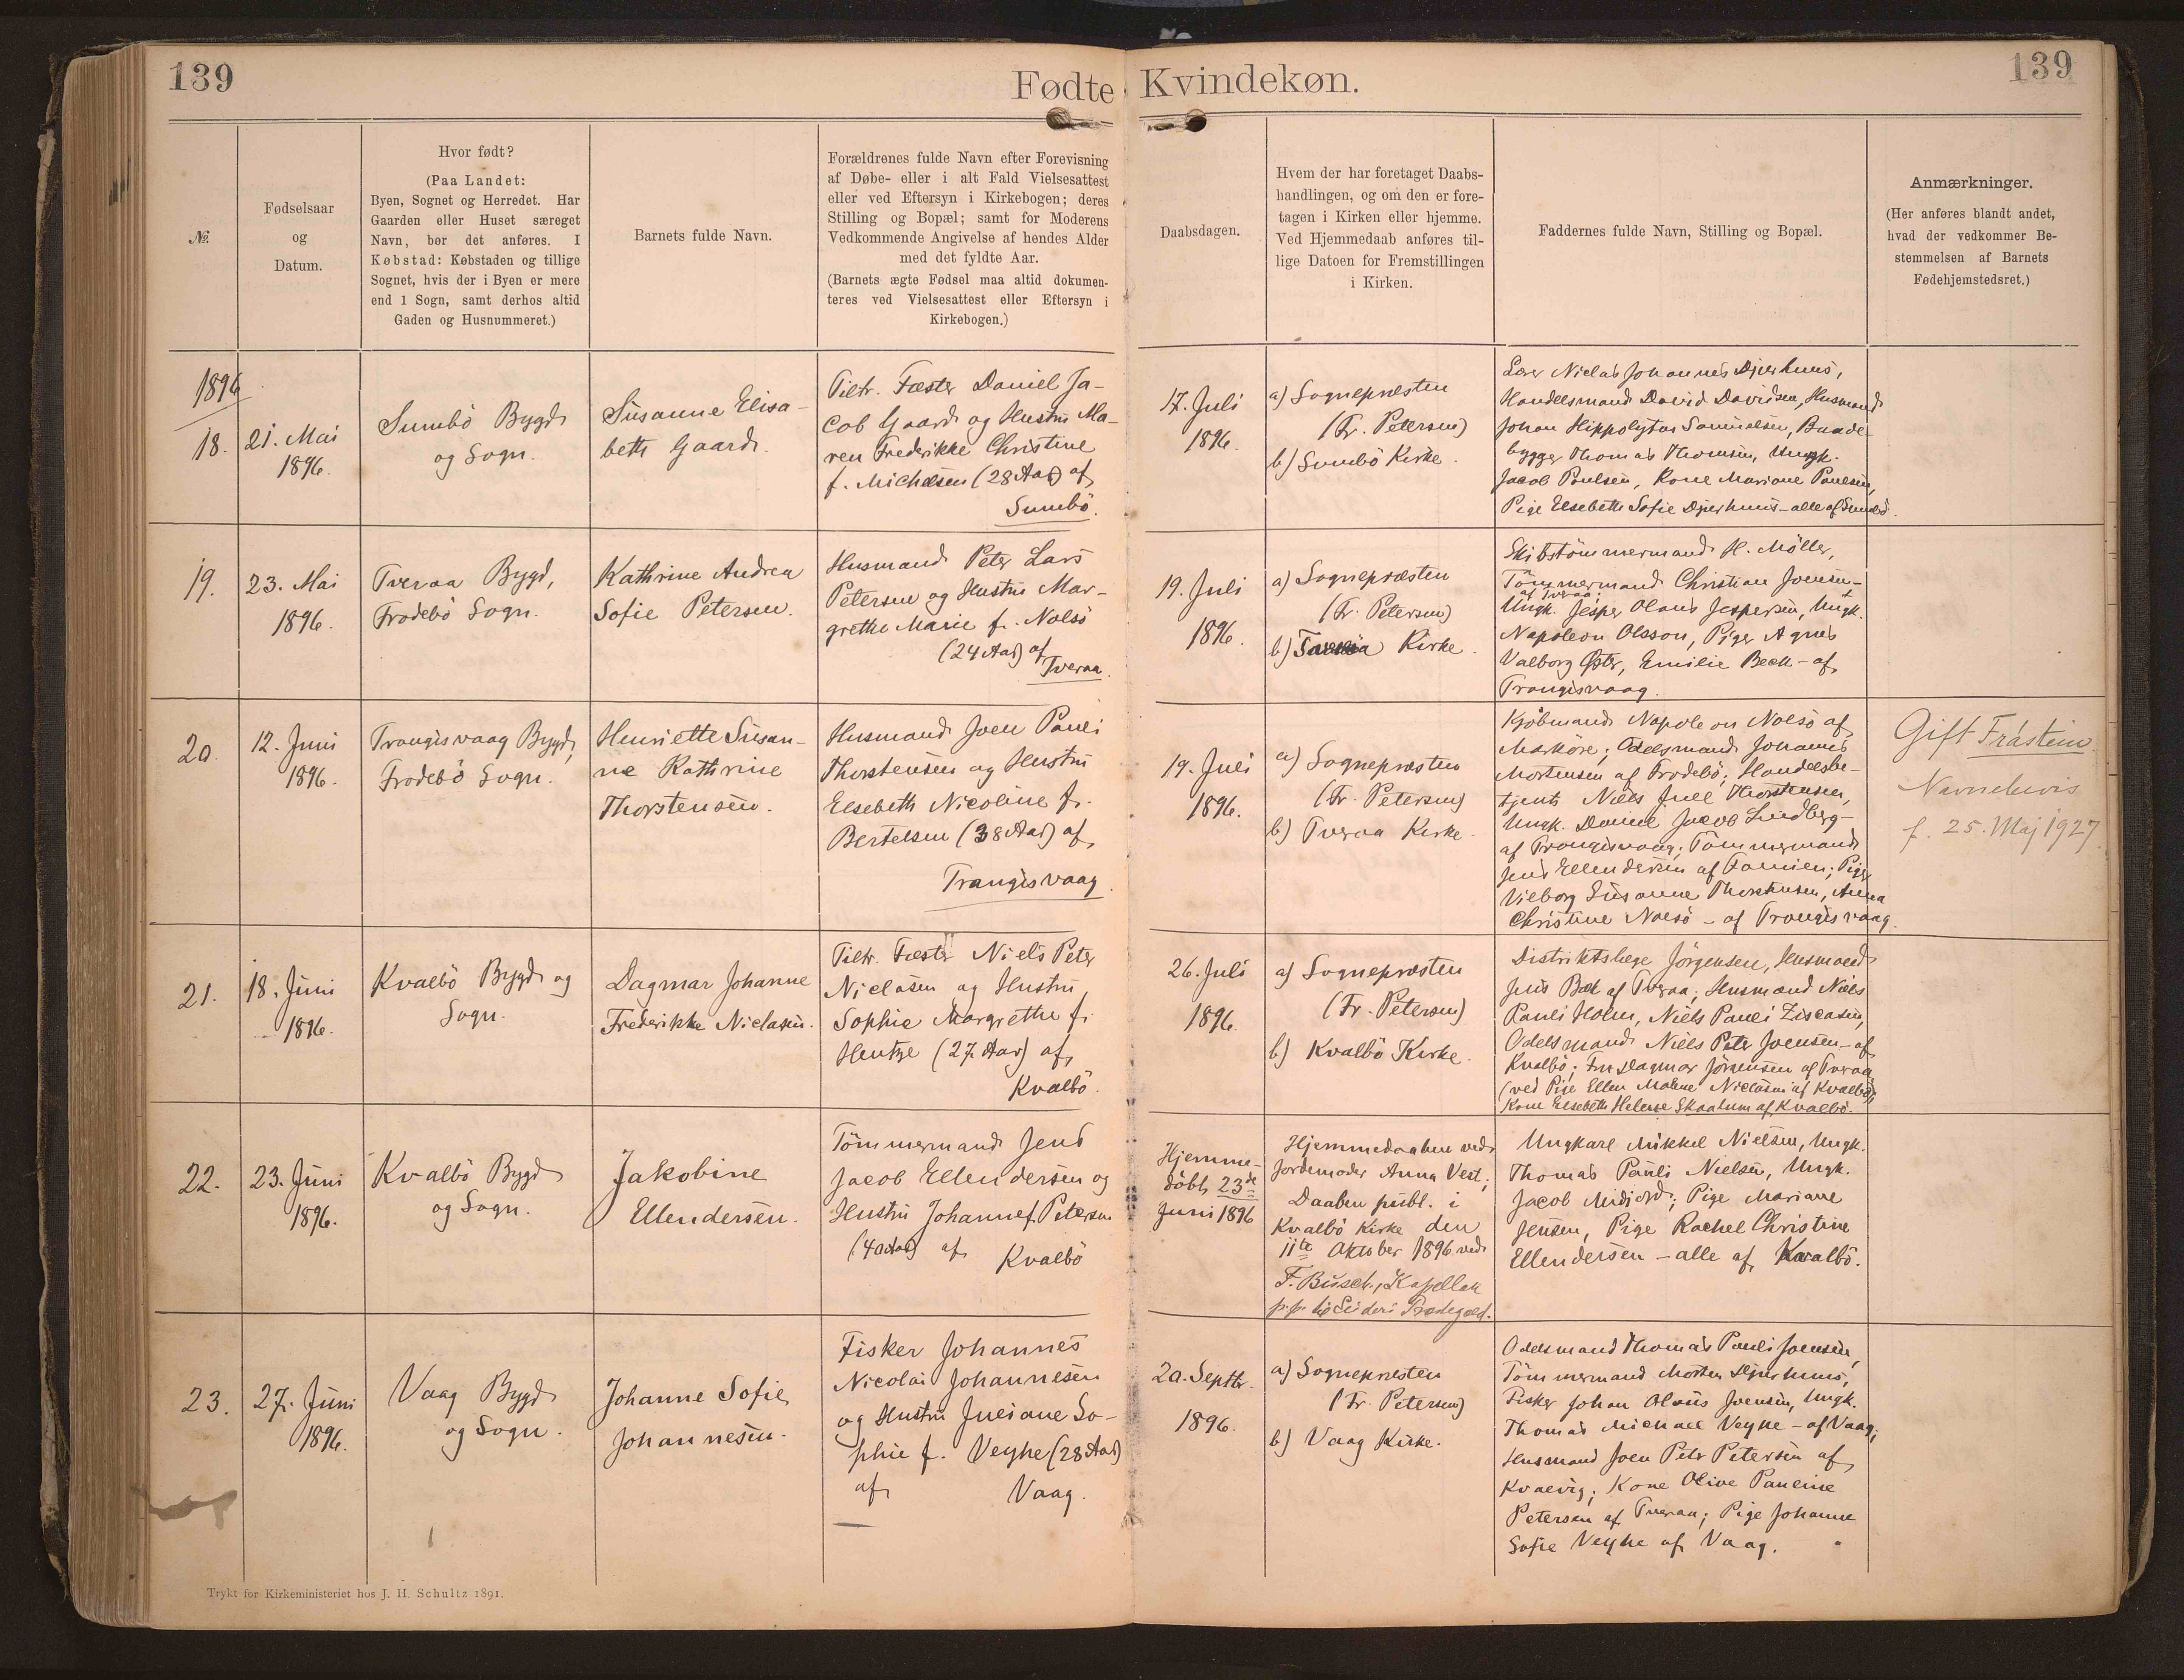 139
Fødte Kvindekøn.
139
№.
Fødselsaar
og
Datum.
Hvor født?
(Paa Landet:
Byen, Sognet og Herredet. Har
Gaarden eller Huset særeget
Navn, bør det anføres. I
Købstad: Købstaden og tillige
Sognet, hvis der i Byen er mere
end 1 Sogn, samt derhos altid
Gaden og Husnummeret.)
Barnets fulde Navn.
Forældrenes fulde Navn efter Forevisning
af Døbe- eller i alt Fald Vielsesattest
eller ved Eftersyn i Kirkebogen; deres
Stilling og Bopæl; samt for Moderens
Vedkommende Angivelse af hendes Alder
med det fyldte Aar.
(Barnets ægte Fødsel maa altid dokumen-
teres ved Vielsesattest eller Eftersyn i
Kirkebogen.)
Daabsdagen.
Hvem der har foretaget Daabs-
handlingen, og om den er fore-
tagen i Kirken eller hjemme.
Ved Hjemmedaab anføres til-
lige Datoen for Fremstillingen
i Kirken.
Faddernes fulde Navn, Stilling og Bopæl.
Anmærkninger.
(Her anføres blandt andet,
hvad der vedkommer Be-
stemmelsen af Barnets
Fødehjemstedsret.)
1896
18.
21. Mai
1896.
Sumbö Bygd
og Sogn.
Susanne Elisa-
beth Gaard.
Tiltr. Fæster Daniel Ja-
cob Gaard og Hustru Ma-
ren Frederikke Christine
f. Michelsen (28 Aar) af
Sumbö.
17. Juli
1896.
a) Sognepræsten
(Fr. Petersen)
b) Sumbö Kirke.
Lærer Niclas Johannes Djurhuus,
Handelsmand David Davidsen, Husmand
Johan Hippolytus Samuelsen, Baade-
bygger Thomas Thomsen, Ungk.
Jacob Poulsen, Kone Mariane Poulsen,
Pige Elsebeth Sofie Djurhuus - alle af Sumbö.
19.
23. Mai
1896.
Tveraa Bygd,
Frodebö Sogn.
Kathrine Andrea
Sofie Petersen.
Husmand Peter Lars
Petersen og Hustru Mar-
grethe Marie f. Nolsö
(24 Aar) af
Tveraa.
19. Juli
1896.
a) Sognepræsten
(Fr. Petersen)
b) Kirke.
Skibstömmermand H. Möller,
Tömmermand Christian Joensen -
af Tveraa;
Ungk. Jesper Olaus Jespersen, Ungk.
Napoleon Olsson, Piger Agnes
Valborg Öster, Emilie Beck - af
Trangisvaag.
20.
12. Juni
1896.
Trangisvaag Bygd,
Frodebö Sogn.
Henriette Susan-
ne Kathrine
Thorstensen.
Husmand Joen Pauli
Thorstensen og Hustru
Elsebeth Nicoline f.
Bertelsen (38 Aar) af
Trangisvaag.
19. Juli
1896.
a) Sognepræsten
(Fr. Petersen)
b) Tveraa Kirke.
Kjöbmand Napoleon Nolsö af
Marköre; Odelsmand Johannes
Mortensen af Frodebö; Handelsbe-
tjent Niels Juel Thorstensen,
Ungk. Daniel Jacob Lindberg -
af Trangisvaag; Tömmermand
Jens Ellendersen af Famien; Piger
Vieborg Susanne Thorstensen, Anna
Christine Nolsö - af Trangisvaag.
Gift Frástein.
Navnebevis
f. 25. Maj 1927
21.
18. Juni
1896.
Kvalbö Bygd og
Sogn.
Dagmar Johanne
Frederikke Niclasen.
Tiltr. Fæster Niels Peter
Niclasen og Hustru
Sophie Margrethe f.
Hentze (27 Aar) af
Kvalbö.
26. Juli
1896.
a) Sognepræsten
(Fr. Petersen)
b) Kvalbö Kirke.
Distriktslæge Jörgensen, Husmand
Jens Bæk af Tveraa; Husmand Niels
Pauli Holm, Niels Pauli Ziscasen,
Odelsmand Niels Peter Joensen - af
Kvalbö; Fru Dagmar Jörgensen af Tveraa
(ved Pige Ellen Malene Niclasen af Kvalbö),
Kone Elsebeth Helene Skaalum af Kvalbö.
22.
23. Juni
1896.
Kvalbö Bygd
og Sogn.
Jakobine
Ellendersen.
Tömmermand Jens
Jacob Ellendersen og
Hustru Johanne f. Petersen
(40 Aar) af Kvalbö
Hjemme-
döbt 23de
Juni 1896
Hjemmedaaben ved
Jordemoder Anna Vest;
Daaben publ. i
Kvalbö Kirke den
11te Oktober 1896 ved
F. Busch, Kapellan
p.p. til Suderö Præstegæld.
Ungkarl Mikkel Nielsen, Ungk.
Thomas Pauli Nielsen, Ungk.
Jacob Midjord; Pige Mariane
Jensen, Pige Rachel Christine
Ellendersen - alle af Kvalbö.
23.
27. Juni
1896.
Vaag Bygd
og Sogn.
Johanne Sofie
Johannesen.
Fisker Johannes
Nicolai Johannesen
og Hustru Juliane So-
phie f. Veyhe (28 Aar)
af Vaag.
20. Septbr.
1896.
a) Sognepræsten
(Fr. Petersen)
b) Vaag Kirke.
Odelsmand Thomas Pauli Joensen,
Tömmermand Morten Djurhuus,
Fisker Johan Olaus Joensen, Ungk.
Thomas Michael Veyhe - af Vaag;
Husmand Joen Petr Petersen af
Kvalvig; Kone Olive Pauline
Petersen af Tveraa; Pige Johanne
Sofie Veyhe af Vaag.
Trykt for Kirkeministeriet hos J. H. Schultz 1891.